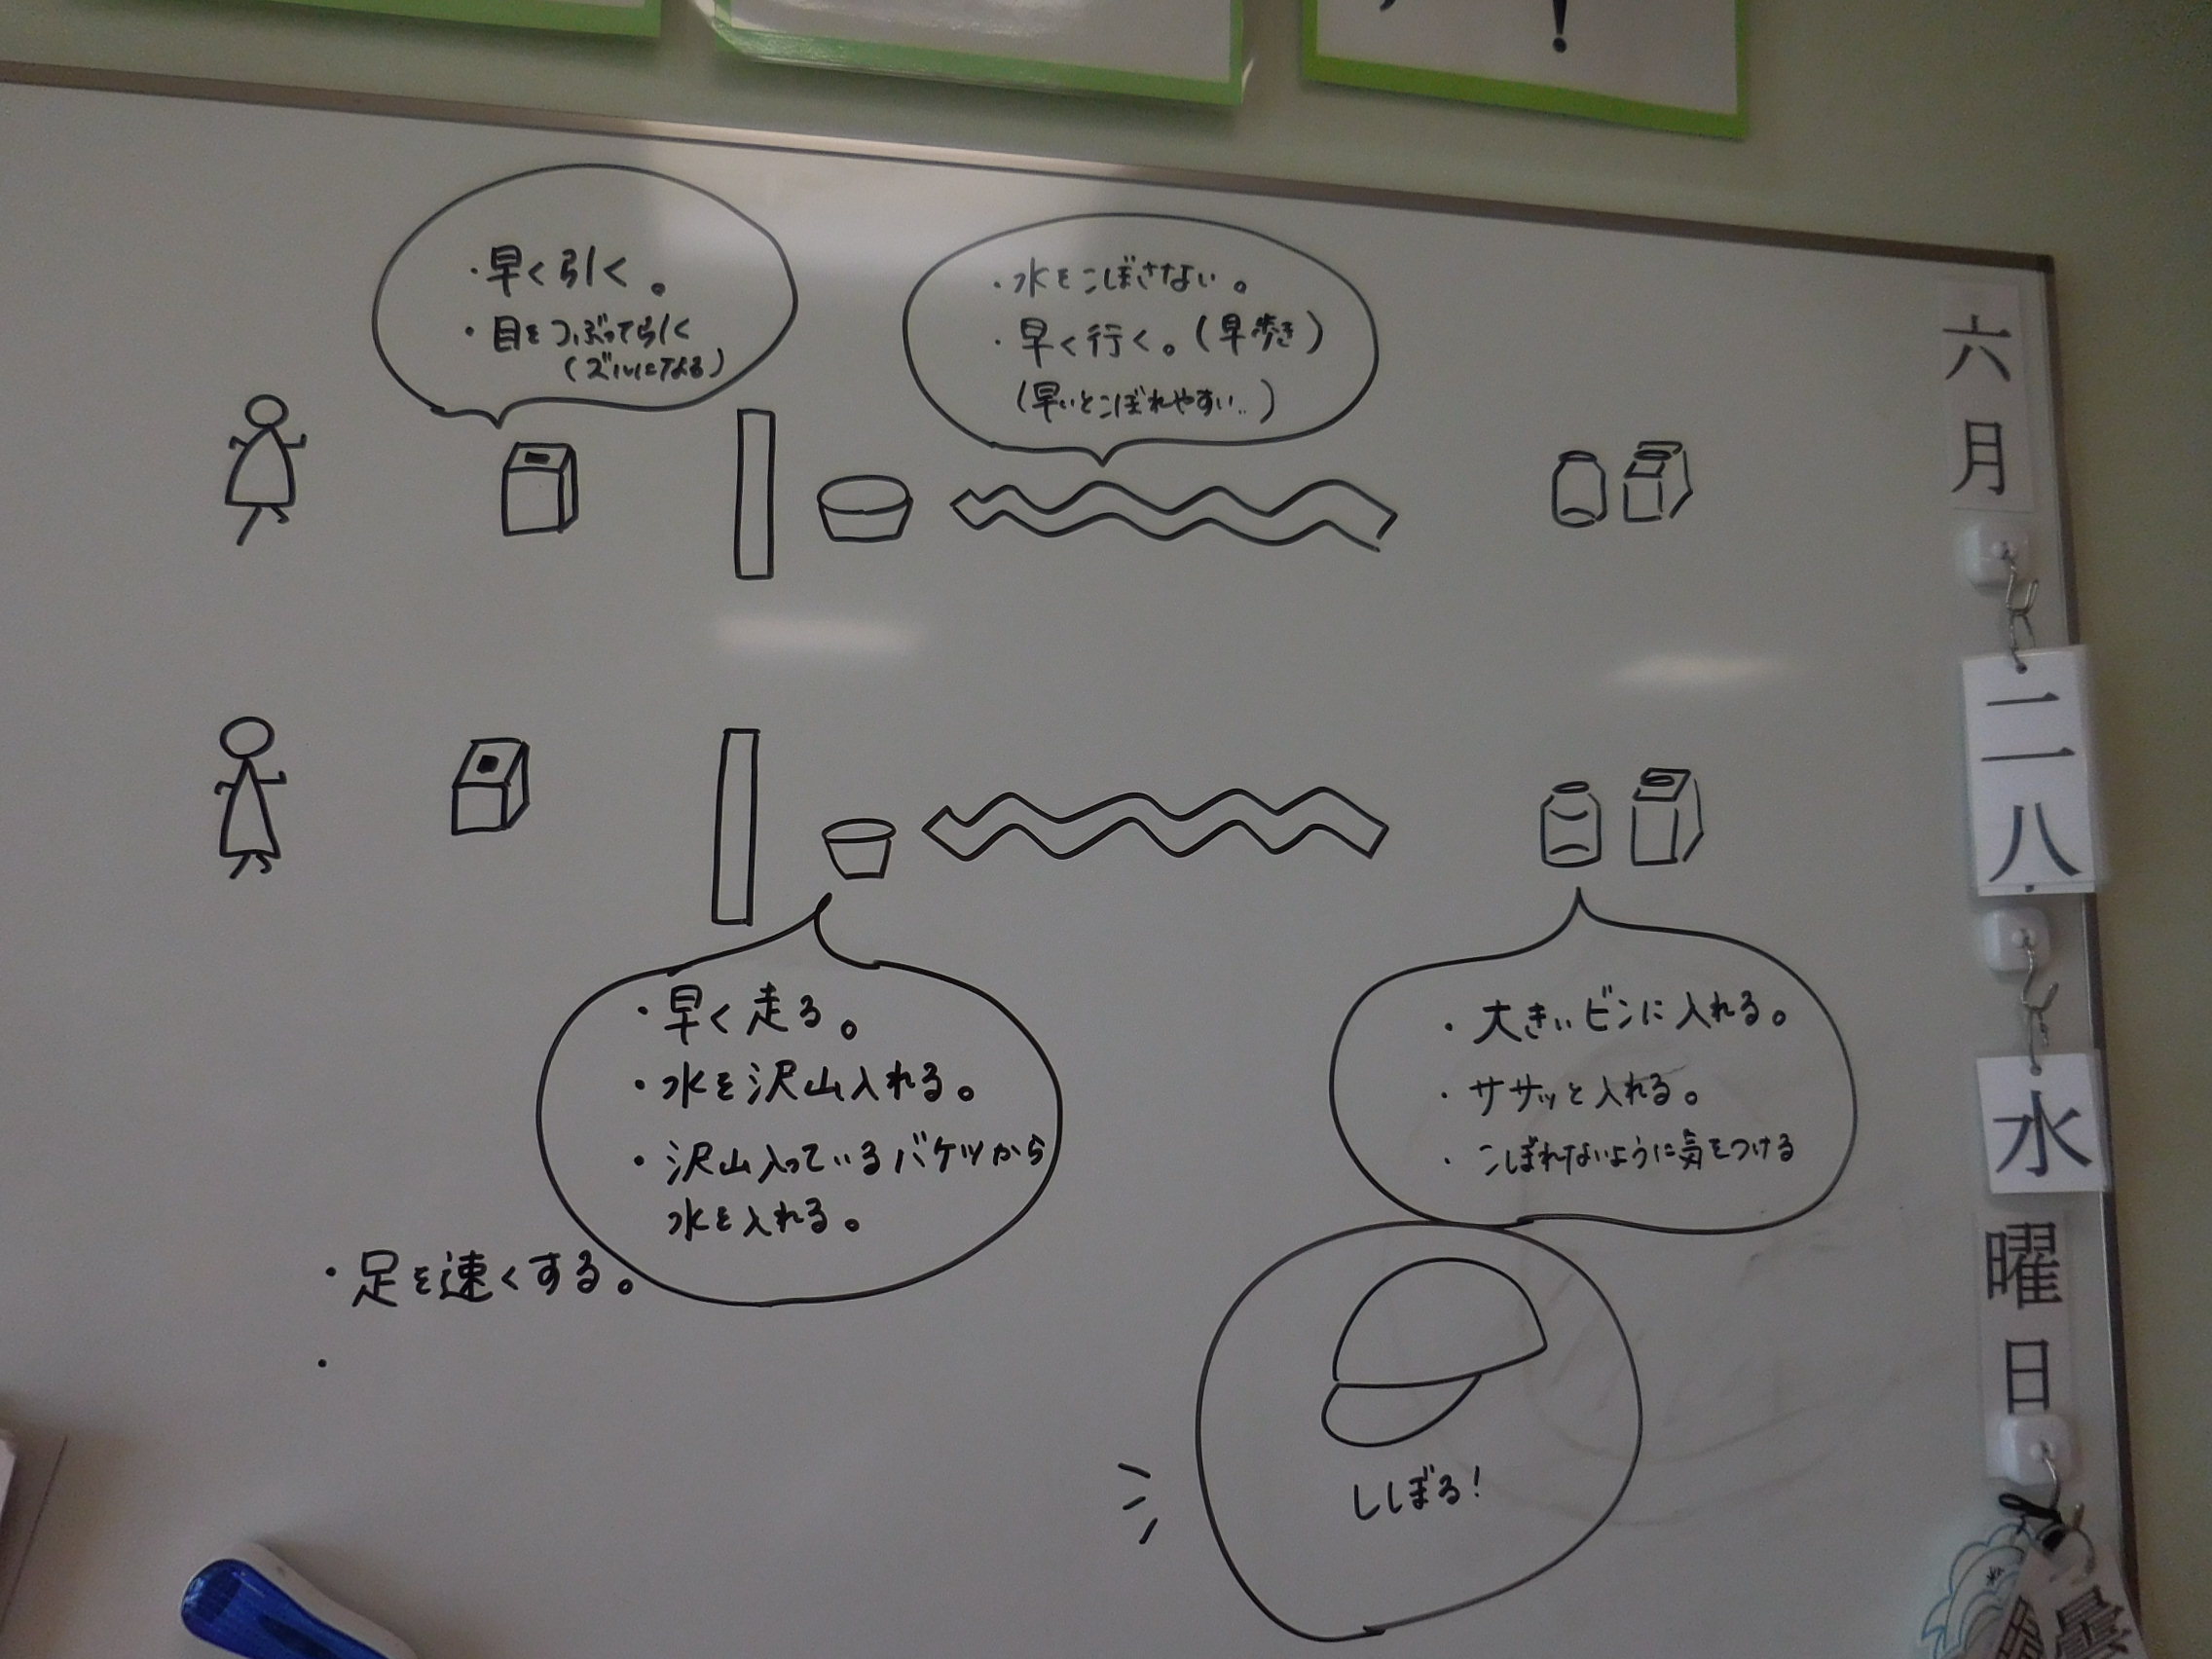 ・早く引く。
・目をつぶって引く
(ズルになる)
・水をこぼさない。
・早く行く。(早歩き)
(早いとこぼれやすい‥)
・早く走る。
・水を沢山入れる。
・沢山入っているバケツから
水を入れる。
・大きいビンに入れる。
・ササッと入れる。
・こぼれないように気をつける
・足を速くする。
・
ししぼる!
六月
二八
水
曜日
!